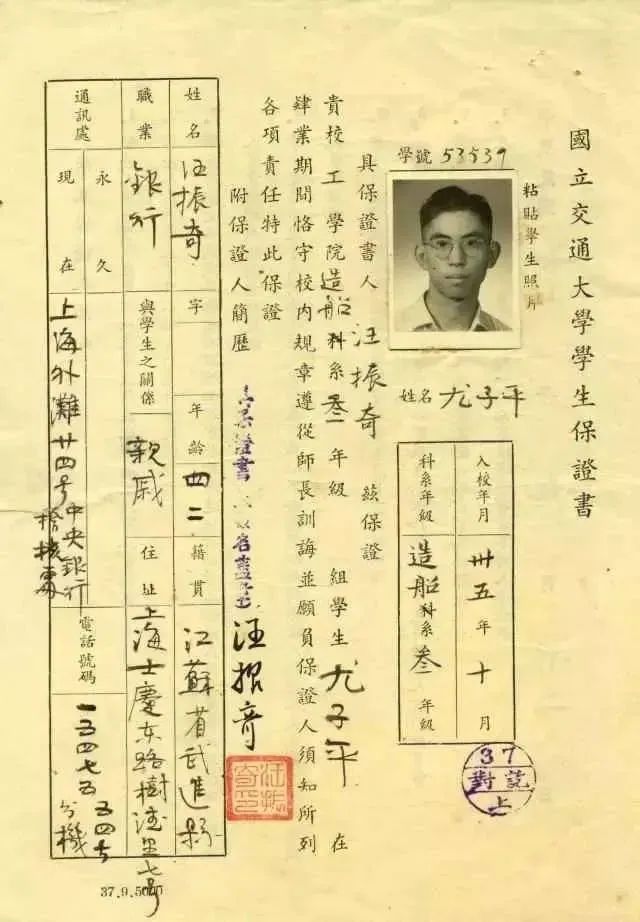 國立交通大學學生保證書
粘貼學生照片
學號 53539
姓名 尤子平
入校年月 卅五年十月
科系年級 造船科系叁年級
37
對訖
上
具保證書人 汪振奇 茲保證
貴校 工 學院 造船 科系 叁 年級 組學生 尤子平 在
肄業期間恪守校內規章遵從師長訓誨並願負保證人須知所列
各項責任特此保證
附保證人簡歷
汪振奇
汪振奇印
姓名 汪振奇 字 年齡 四二 籍貫 江蘇省武進縣
職業 銀行 與學生之關係 親戚 住址 上海士慶東路樹德里七号
通訊處 永久
現在 上海外灘廿四号中央銀行 電話號碼 一五四七五 五四七 分機
37.9.5000